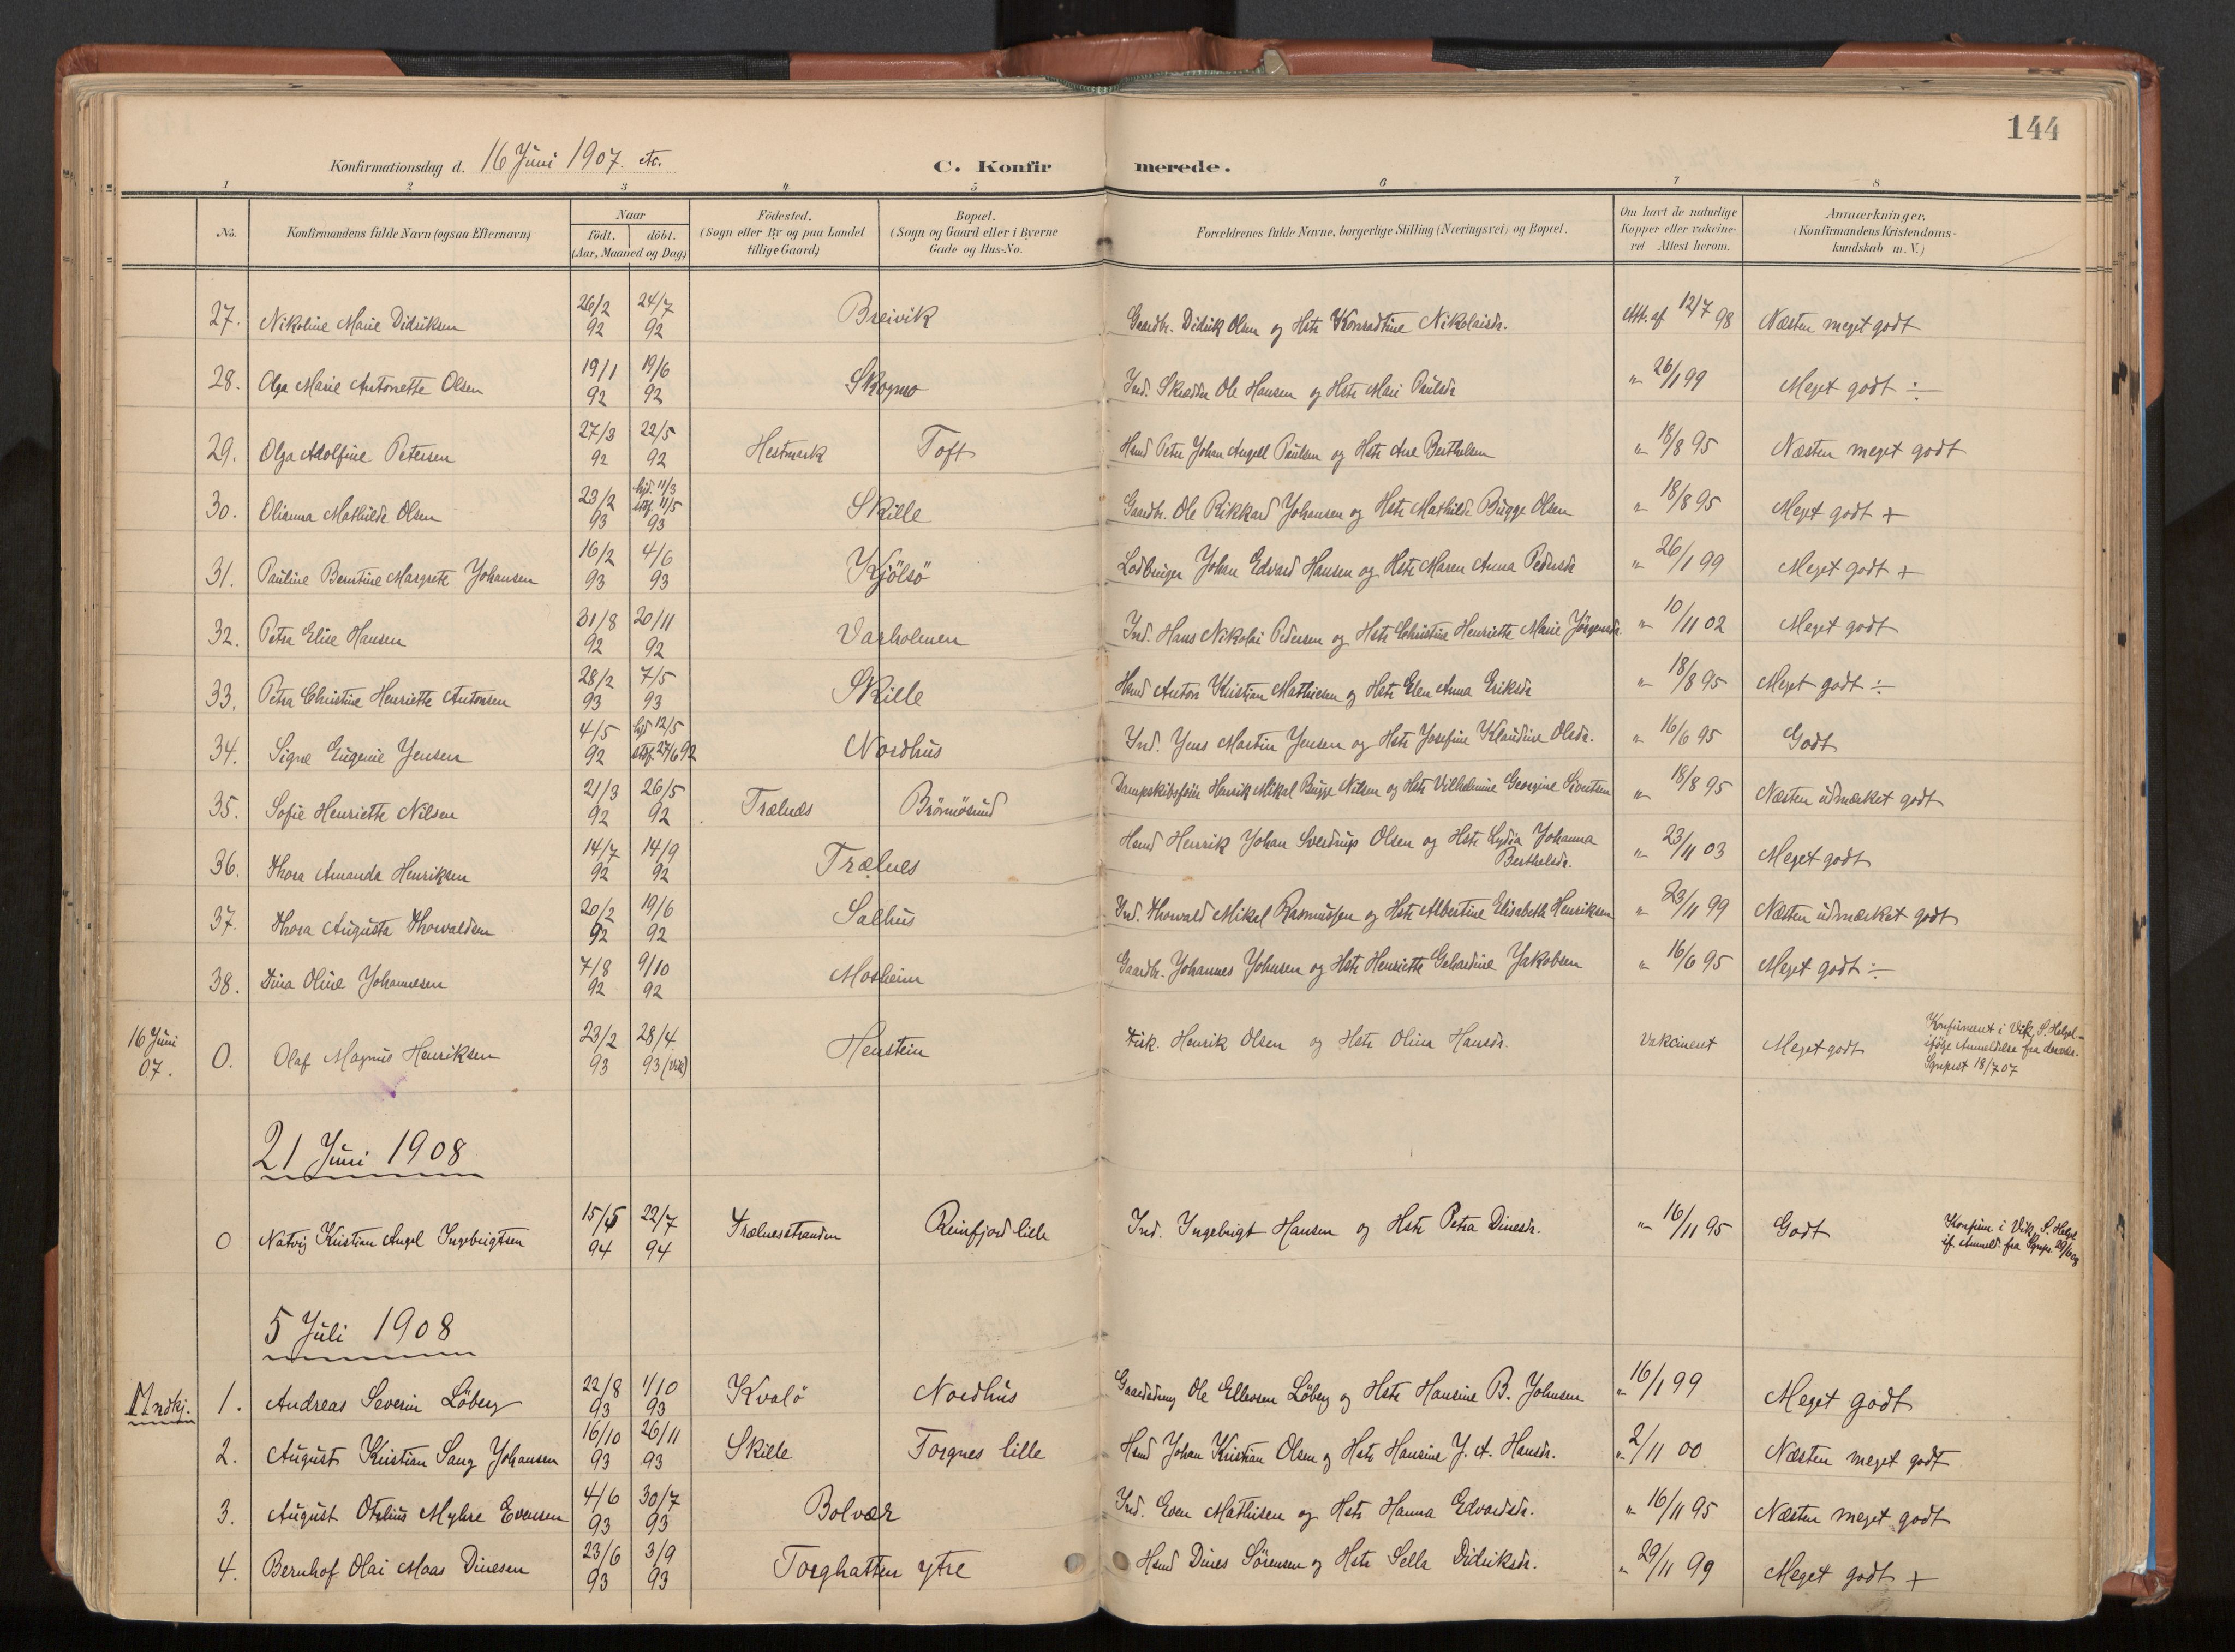 144
Konfirmationsdag d. 16 Juni 1907. etc.
C. Konfirmerede.
1 2 3 4 5 6 7 8
No. Konfirmandens fulde Navn (ogsaa Efternavn) Naar födt. döbt. (Aar, Maaned og Dag) Födested. (Sogn eller By og paa Landet tillige Gaard) Bopæl. (Sogn og Gaard eller i Byerne Gade og Hus-No. Forældrenes fulde Navne, borgerlige Stilling (Næringsvei) og Bopæl. Om havt de naturlige Kopper eller vakcineret Attest herom. Anmærkninger. (Konfirmandens Kristendomskundskab m. V.)
27. Nikoline Marie Didriksen 26/2 92 24/7 92 Breivik Gaardbr. Didrik Olsen og Hstr Konradtine Nikolaisdr. Att. af 12/7 98 Næsten meget godt
28. Olga Marie Antonette Olsen 19/1 92 19/6 92 Skogmo Ind. Skrædder Ole Hansen og Hstr Mari Paulsdr " 26/1 99 Meget godt ÷
29. Olga Adolfine Petersen 27/3 92 22/5 92 Hestmark Toft Hsmd Peter Johan Angell Paulsen og Hstr Ane Berthelsen " 18/8 95 Næsten meget godt
30. Olianna Mathilde Olsen 23/2 93 hjd. 11/3 stf. 11/5 93 Skille Gaardbr. Ole Rikkard Johansen og Hstr Mathilde Bugge Olsen " 18/8 95 Meget godt +
31. Pauline Berntine Margrete Johansen 16/2 93 4/6 93 Kjölsö Lodbruger Johan Edvard Hansen og Hstr Maren Anna Pedersdr " 26/1 99 Meget godt +
32. Petra Elise Hansen 31/8 92 20/11 92 Varholmen Ind. Hans Nikolai Pedersen og Hstr Christine Henriette Marie Jörgensdr. " 10/11 02 Meget godt
33. Petra Christine Henriette Antonsen 28/2 93 7/5 93 Skille Hsmd Anton Kristian Mathiesen og Hstr Elen Anna Eriksdr " 18/8 95 Meget godt ÷
34. Signe Eugenie Jensen 4/5 92 hjd 12/5 stf. 27/6 92 Nordhus Ind. Jens Martin Jensen og Hstr Josefine Klaudine Olsdr. " 16/6 95 Godt
35. Sofie Henriette Nilsen 21/3 92 26/5 92 Trælnes Brönnösund Dampskibsförer Henrik Mikal Bugge Nilsen og Hstr Vilhelmine Georgine Sivertsen " 18/8 95 Næsten udmærket godt
36. Thora Amanda Henriksen 14/7 92 14/9 92 Trælnes Hsmd Henrik Johan Sverdrup Olsen og Hstr Lydia Johanna Berthelsdr. " 23/11 03 Meget godt
37. Thora Augusta Thorvaldsen 20/2 92 19/6 92 Salhus Ind. Thorvald Mikal Rasmussen og Hstr Albertine Elisabeth Henriksen " 23/11 99 Næsten udmærket godt
38. Dina Oline Johannesen 7/8 92 9/10 92 Mosheim Gaardbr. Johannes Johnsen og Hstr Henriette Gehardine Jakobsen " 16/6 95 Meget godt ÷
16 Juni 07. 0. Olaf Magnus Henriksen 23/2 93 28/4 93 (Vik) Henstein Fisk. Henrik Olsen og Hstr Olina Hansdr. Vakcineret Meget godt Konfirmeret i Vik, S. Helgel. ifölge Anmeldelse fra dervær. Sgnprst 18/7 07
21 Juni 1908
0 Natvig Kristian Angel Ingebrigtsen 15/5 94 22/7 94 Trælnesstranden Reinfjord lille Ind. Ingebrigt Hansen og Hstr Petra Dinesdr. " 16/11 95 Godt Konfirm. i Vik, S. Helgel. if. Anmeld. fra Sgnpr.
5 Juli 1908
Mndkj. 1. Andreas Severin Löberg 22/8 93 1/10 93 Kvalö Nordhus Gaardbrug Ole Ellevsen Löberg og Hstr Hansine B. Johnsen " 16/1 99 Meget godt
2. August Kristian Sang Johansen 16/10 93 26/11 93 Skille Torgnes lille Hsmd Johan Kristian Olsen og Hstr Hansine J. A. Hansdr. " 2/11 00 Næsten meget godt
3. August Otelius Myhre Evensen 4/6 93 30/7 93 Bolvær Ind. Even Mathisen og Hstr Hanna Edvardsdr. " 16/11 95 Næsten meget godt
4. Bernhof Olai Maas Dinesen 23/6 93 3/9 93 Torghatten ytre Hsmd Dines Sörensen og Hstr Sella Didriksdr. " 29/11 99 Meget godt +